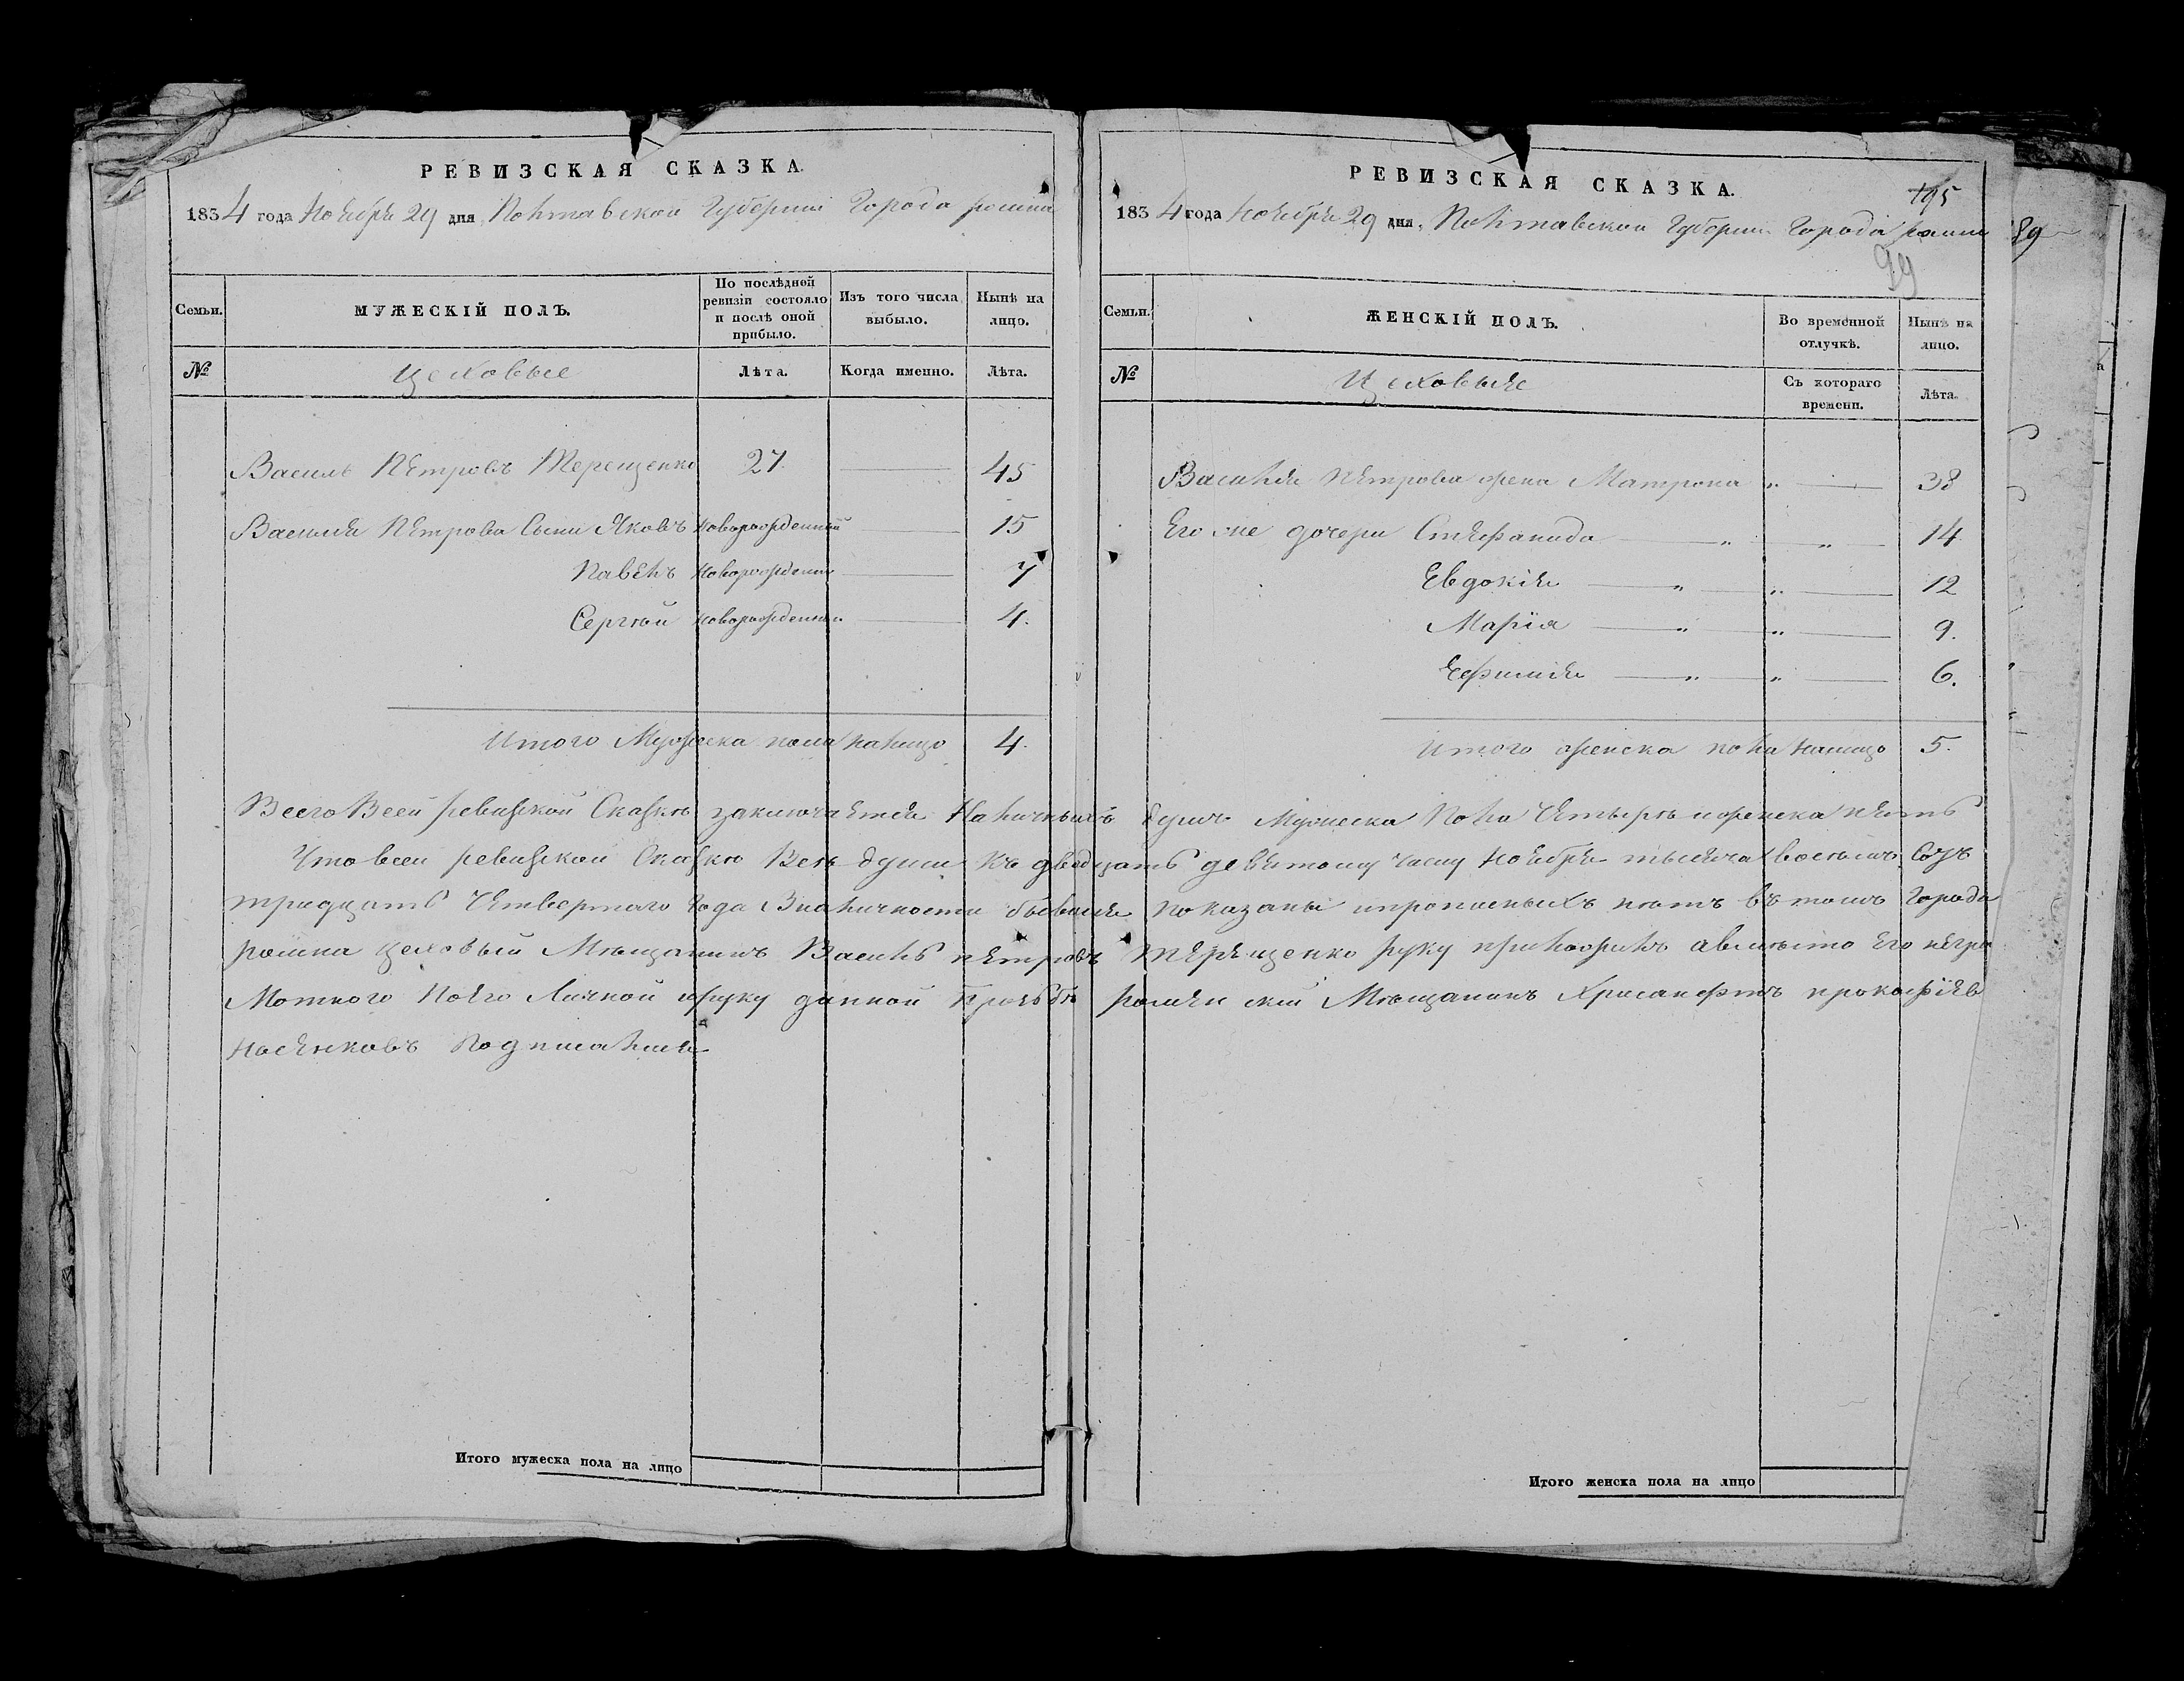 РЕВИЗСКАЯ СКАЗКА.
1834 года Ноября 29 дня Полтавской Губернии Города ромна
Семьи.
МУЖЕСКІЙ ПОЛЪ.
По послѣдней ревизіи состояло и послѣ оной прибыло.
Изъ того числа выбыло.
Нынѣ на лицо.
№
Цеховые
Лѣта.
Когда именно.
Лѣта.
Василь Петровъ Терещенко 27 45
Василия Петрова Сыни Яковъ новорожденный 15
Павелъ новорожденни 7
Сергѣй новорожденни 4.
Итого Мужеска пола налицо 4.
РЕВИЗСКАЯ СКАЗКА.
195
1834 года Ноября 29 дня. Полтавской Губернии Города ромна
89
99
Семьи.
ЖЕНСКІЙ ПОЛЪ.
Во временной отлучкѣ.
Нынѣ на лицо.
№
Цеховыя
Съ котораго времени.
Лѣта.
Василия Петрова жена Матрона „ 38
Его же дочери Стефанида „ „ 14
Евдокія „ „ 12
Марія „ „ 9.
Ефимія „ „ 6.
Итого женска пола налицо 5.
Всего Всей ревизской Сказкѣ заключается Наличныхъ душъ Мужеска Пола Четырѣ и женска пять
Что всей ревизской Сказкѣ Всѣ души къ двадцать девятому числу Ноября тысяча восемъ Сотъ
тридцать Четвертаго года Вналичности бывшия показаны ипрописныхъ нѣтъ въ томъ Города
ромна цеховый Мѣщанинъ Василь петровъ Терещенко руку приложилъ авмѣсто Его негра
Мотного Поего Личной ируку данной Прозьбѣ роменский Мѣщанинъ Хрисанфъ прокофіев
Подписался
Итого мужеска пола на лицо
Итого женска пола на лицо